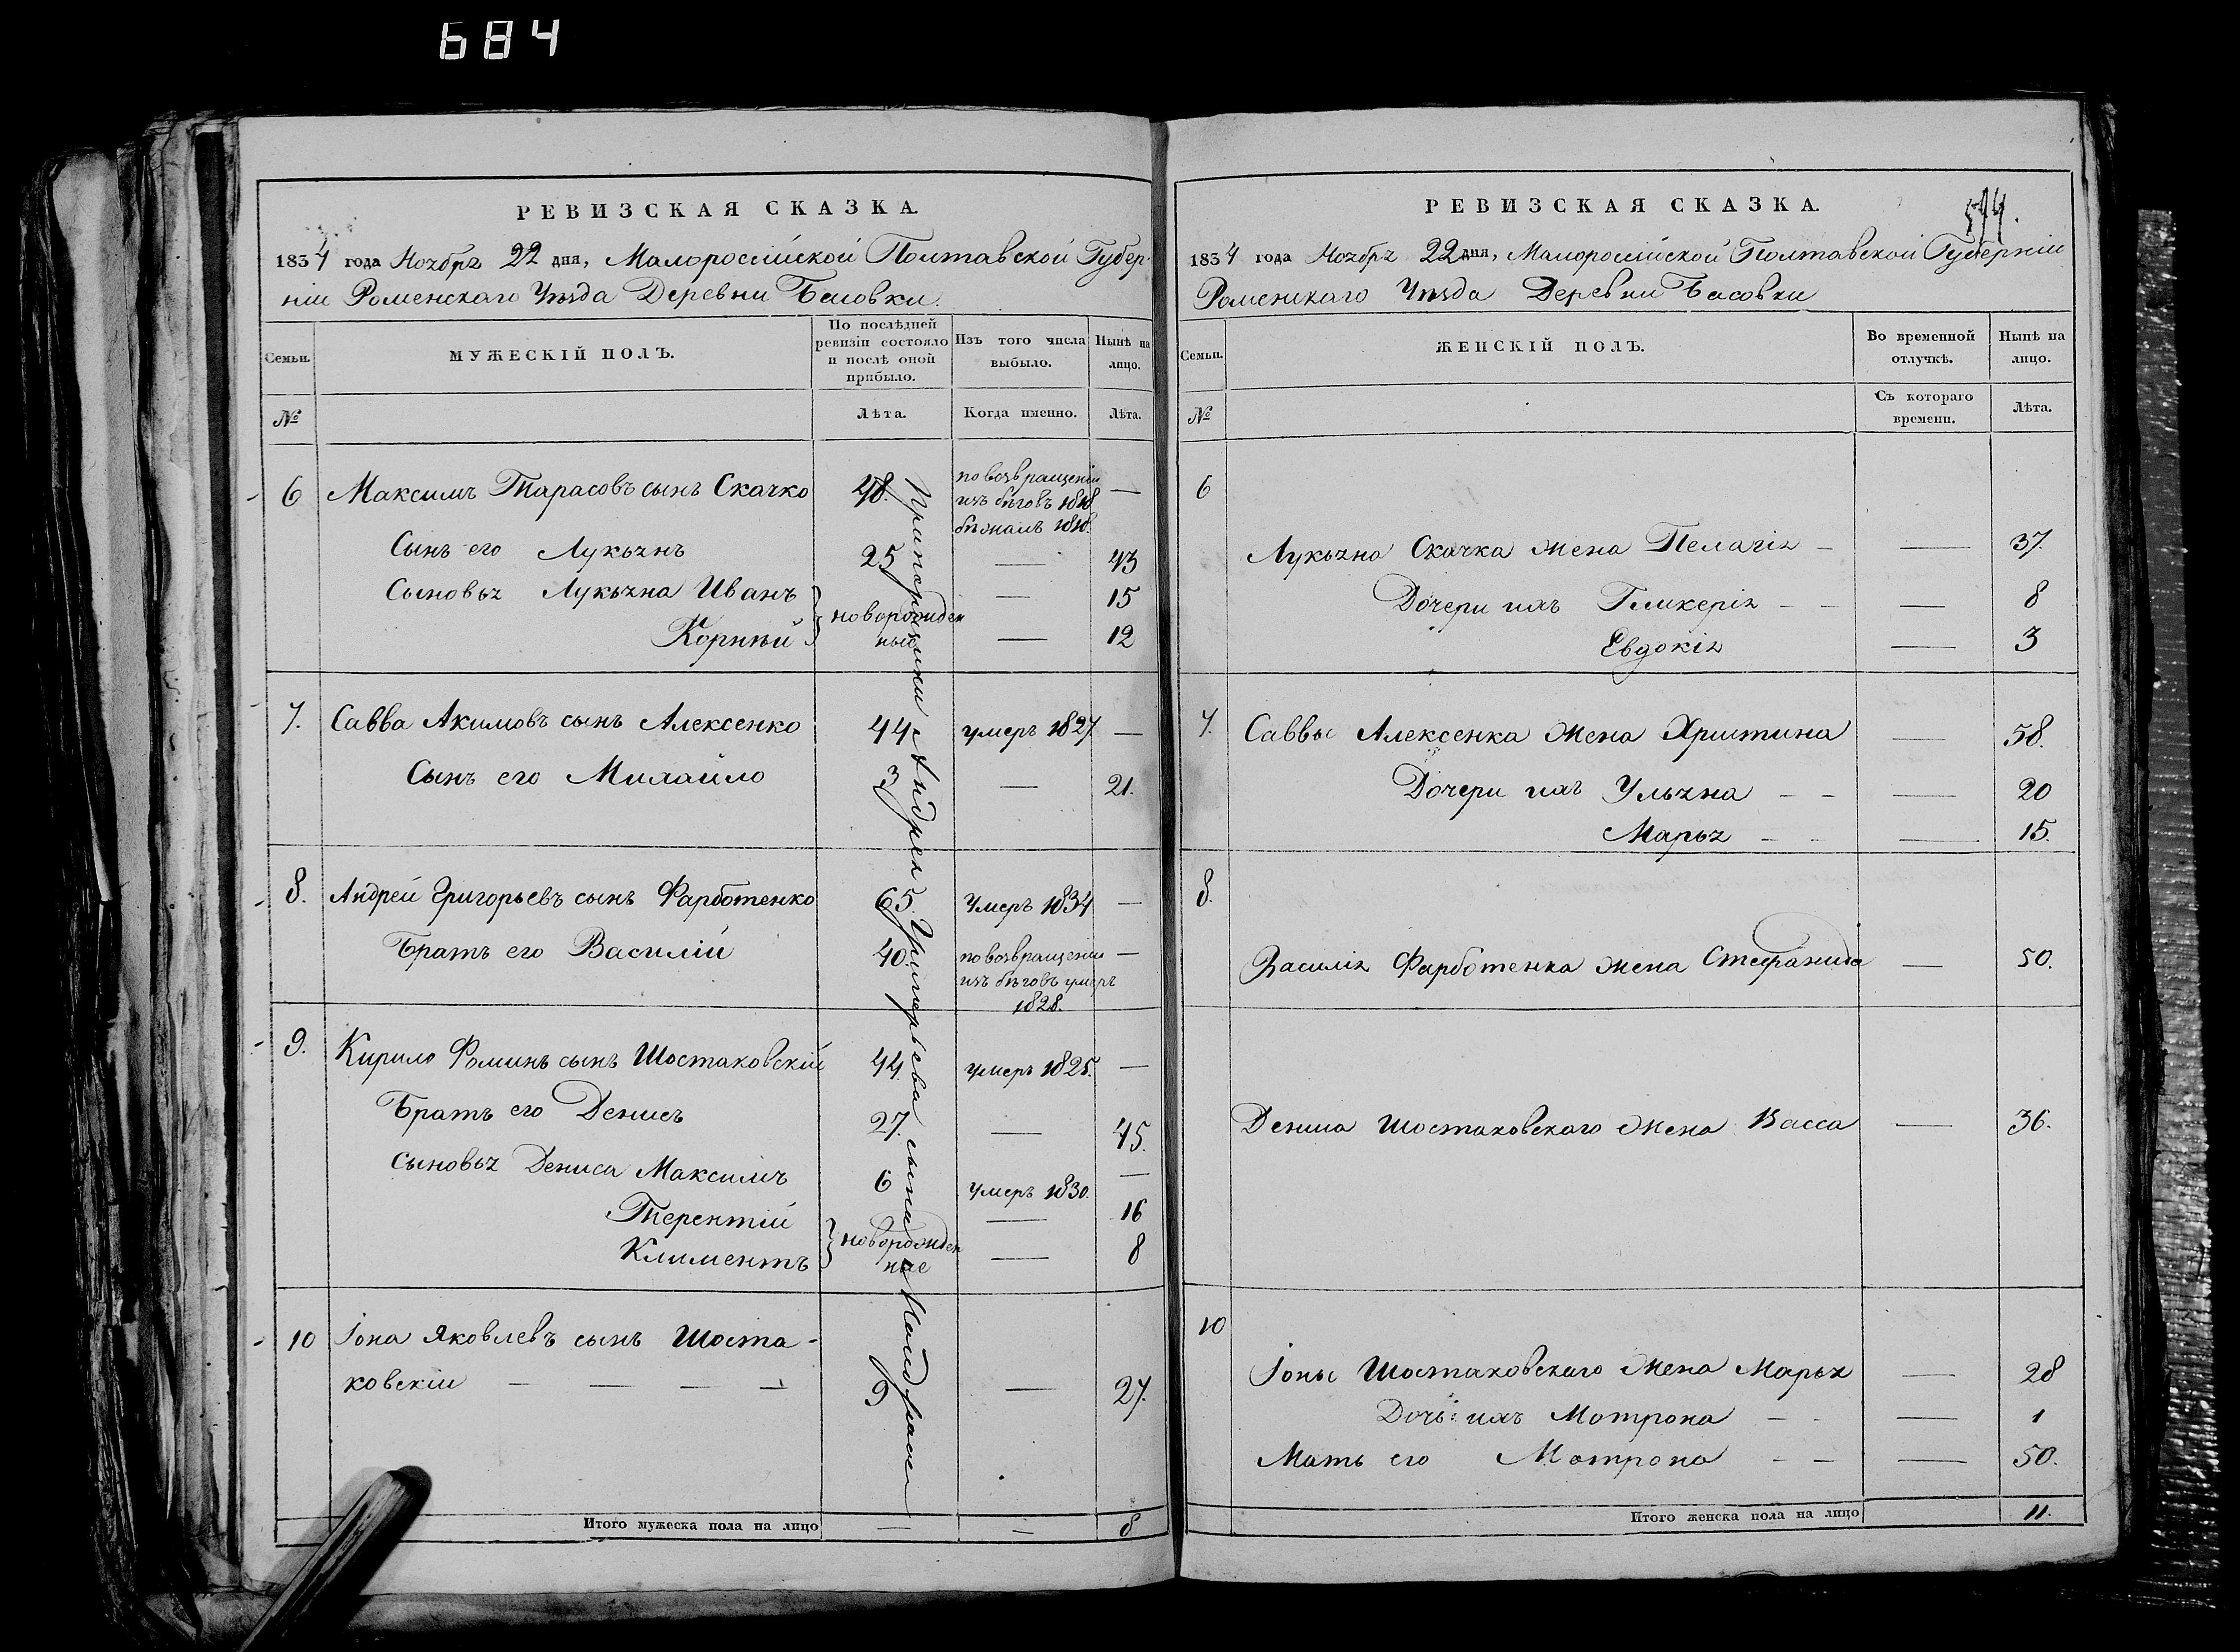 684
РЕВИЗСКАЯ СКАЗКА.
1834 года Ноября 22 дня, Малороссійской Полтавской Губер-
ніи Роменскаго Уѣзда Деревни Басовки.
Семьи. МУЖЕСКІЙ ПОЛЪ. По послѣдней ревизіи состояло и послѣ оной прибыло. Изъ того числа выбыло. Нынѣ на лицо.
№ Лѣта. Когда именно. Лѣта.
6 Максимъ Тарасовъ сынъ Скачко 48. по возвращеніи —
изъ бѣговъ 1818
бѣжалъ 1818.
Сынъ его Лукьянъ 25 — 43
Сыновья Лукьяна Иванъ новорожден — 15
Корнѣй ные — 12
7. Савва Акимовъ сынъ Алексенко 44 умеръ 1827. —
Сынъ его Михайло 3 — 21.
8. Андрей Григорьевъ сынъ Фарботенко 65. Умеръ 1834 —
Братъ его Василій 40. по возвращеніи —
изъ бѣговъ умеръ
1828.
9. Кирило Фоминъ сынъ Шостаковскій 44. умеръ 1825. —
Братъ его Денисъ 27. — 45.
Сыновья Дениса Максимъ 6 Умеръ 1830. —
Терентій новорожден — 16
Климентъ ные — 8
10 Іона Яковлевъ сынъ Шоста-
ковскій — — — — 9 — 27.
Андрея Григорьева сына
Итого мужеска пола на лицо — — 8
РЕВИЗСКАЯ СКАЗКА.
1834 года Ноября 22 дня, Малороссійской Полтавской Губерніи
Роменскаго Уѣзда Деревни Басовки
Семьи. ЖЕНСКІЙ ПОЛЪ. Во временной отлучкѣ. Нынѣ на лицо.
№ Съ котораго времени. Лѣта.
6
Лукьяна Скачка жена Пелагія — — 37.
Дочери ихъ Гликерія — — — 8
Евдокія — 3
7. Саввы Алексенка жена Христина — 58.
Дочери ихъ Ульяна — — — 20
Марья — — — 15.
8.
Василія Фарботенка жена Стефанида — 50.
Дениса Шостаковскаго жена Васса — 36.
10
Іоны Шостаковскаго жена Марья — 28
Дочь ихъ Мотрона — — — 1
Мать его Мотрона — — — 50.
Итого женска пола на лицо 11.